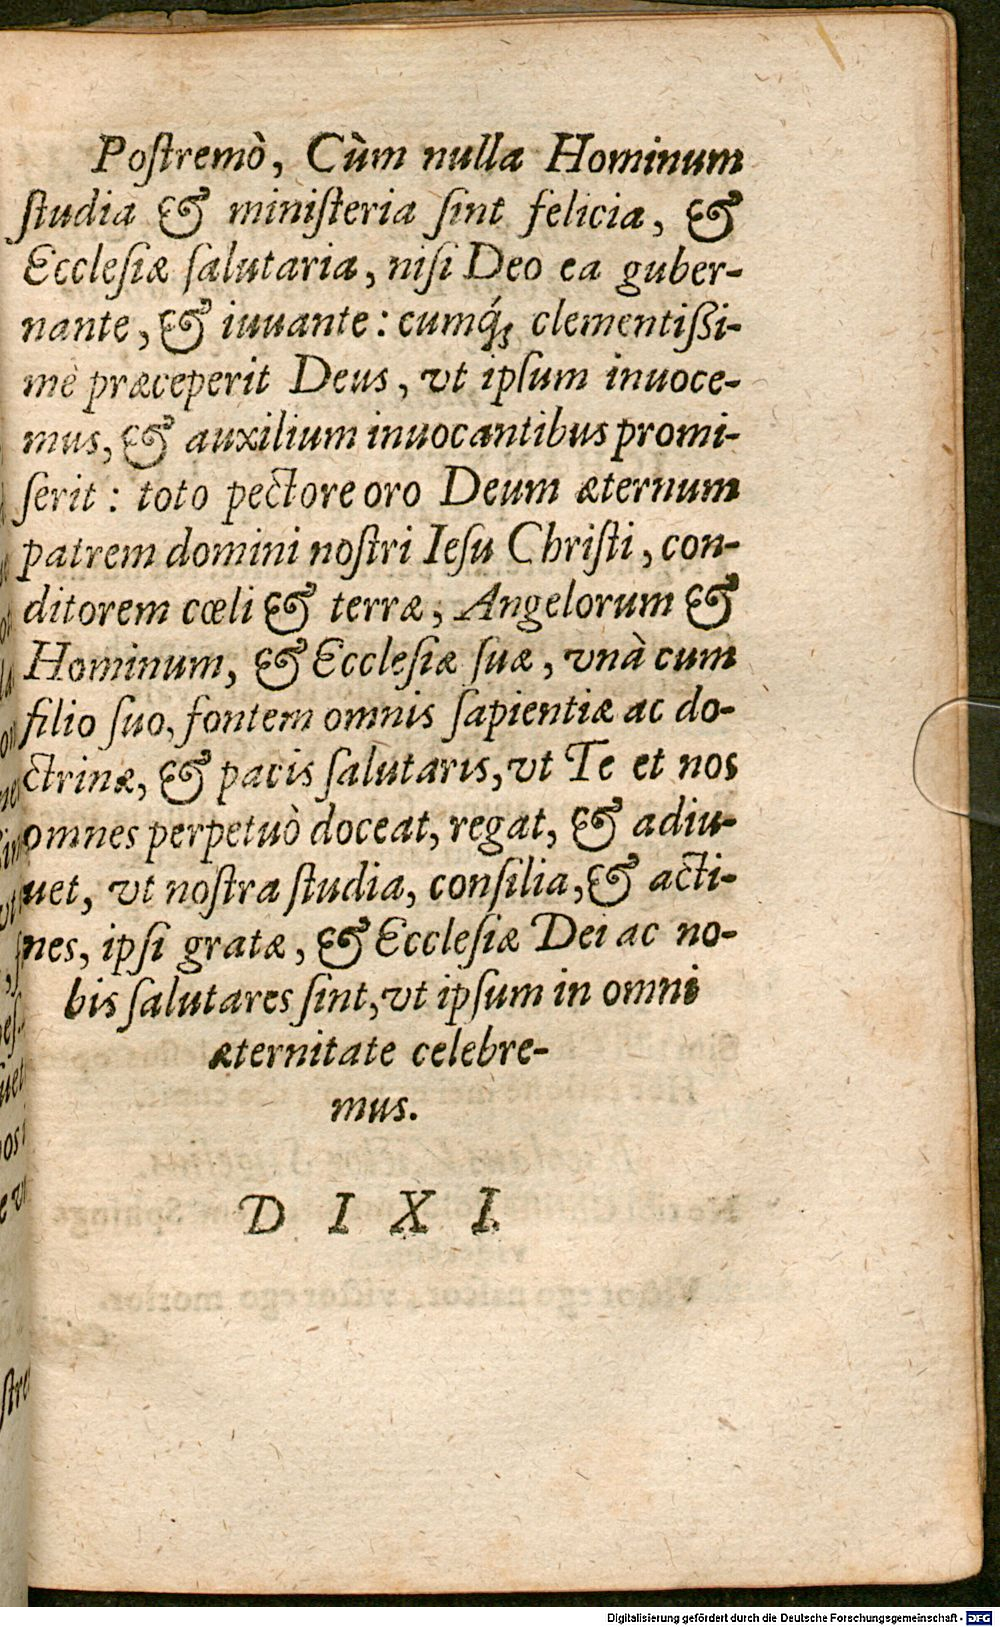 Poſtremò, Cùm nulla Hominum
ſtudia & miniſteria ſint felicia, &
Eccleſiæ ſalutaria, niſi Deo ea guber-
nante, & iuuante: cumq́ꝫ clementißi-
mè præceperit Deus, vt ipſum inuoce-
mus, & auxilium inuocantibus promi-
ſerit: toto pectore oro Deum æternum
patrem domini noſtri Ieſu Chriſti, con-
ditorem cœli & terræ, Angelorum &
Hominum, & Eccleſiæ ſuæ, vnà cum
filio ſuo, fontem omnis ſapientiæ ac do-
ctrinæ, & pacis ſalutaris, vt Te et nos
omnes perpetuò doceat, regat, & adiu-
uet, vt noſtra ſtudia, conſilia, & acti-
nes, ipſi gratæ, & Eccleſiæ Dei ac no-
bis ſalutares ſint, vt ipſum in omni
æternitate celebre-
mus.
D I X I.
Digitalisierung gefördert durch die Deutsche Forschungsgemeinschaft - DFG